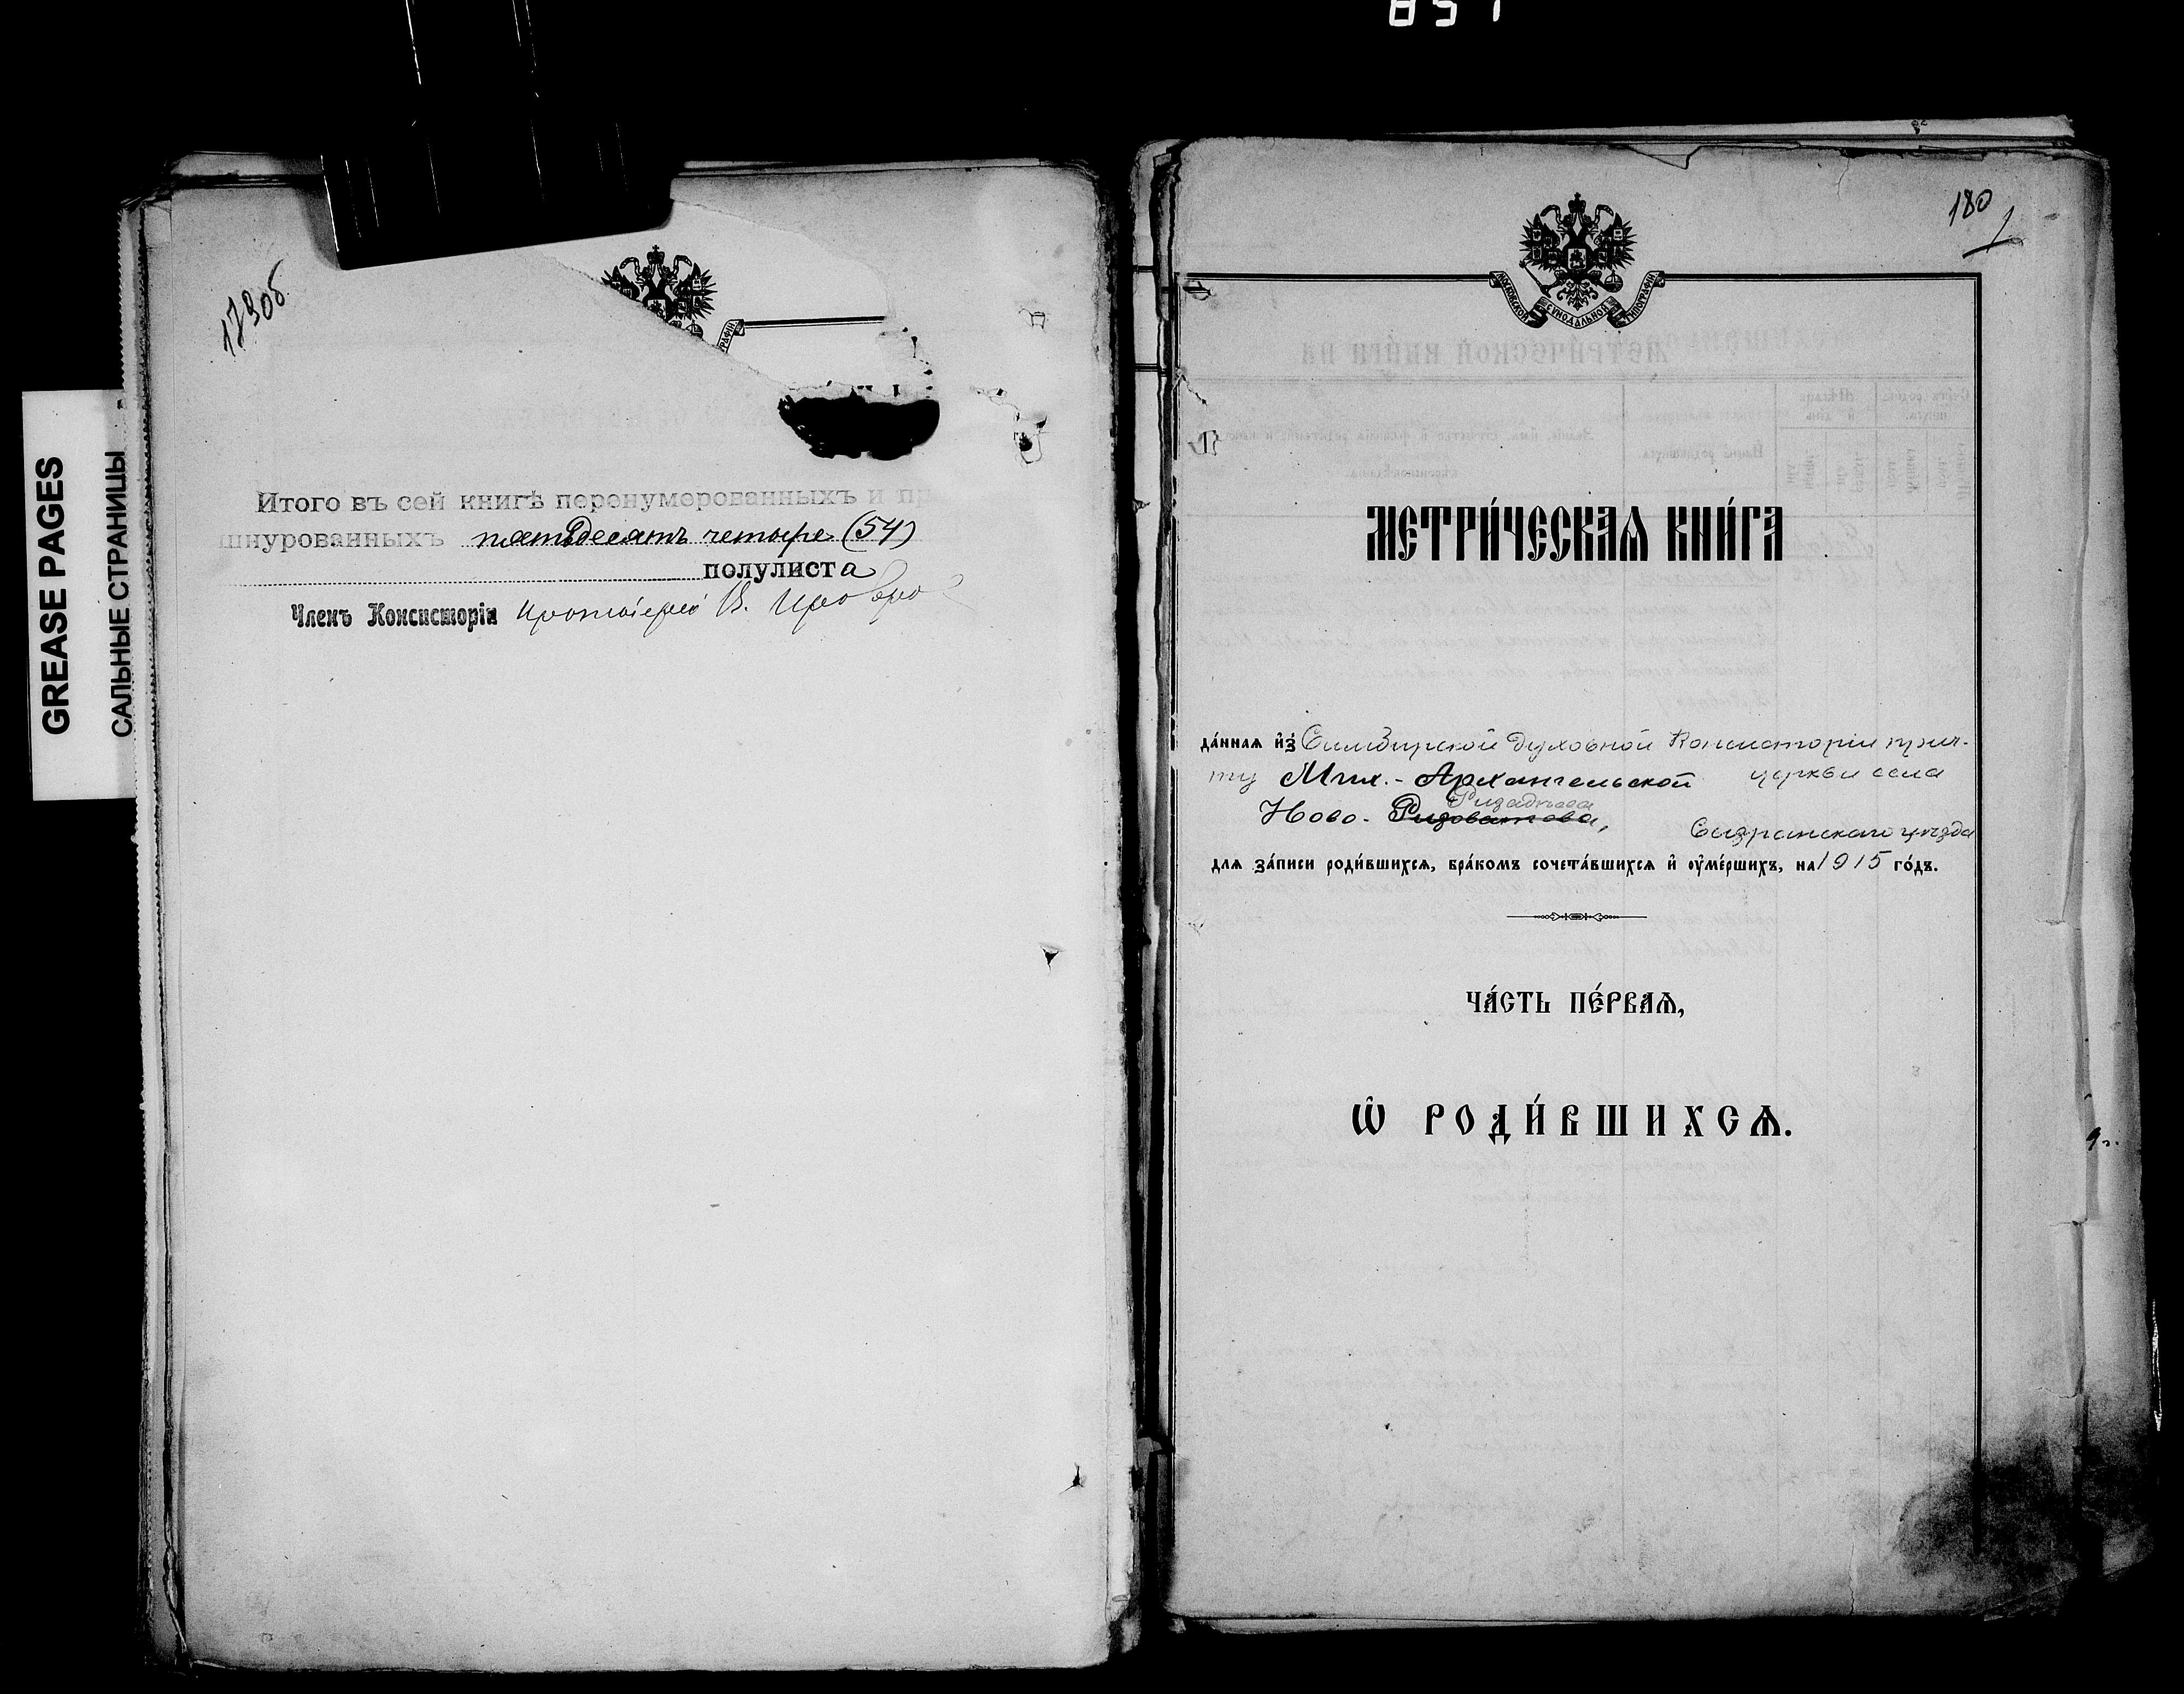 857
GREASE PAGES
САЛЬНЫЕ СТРАНИЦЫ
179об
Итого въ сей книгѣ перенумерованныхъ и пр
шнурованныхъ пятьдесятъ четыре (54)
полулиста
Членъ Консисторіи протоіерей В.
180
1
МОСКОВСКОЙ СѴНОДАЛЬНОЙ ТИПОГРАФІИ
МЕТРИ́ЧЕСКАѦ КНИ́ГА
да́ннаѧ и҆з̾ Симбирской Духовной Консисторіи прич-
ту Мих.-Архангельской церкви села
Ново-Ризоватова, Ризадѣева
Сызранскаго уѣзда
для за́писи роди́вшихсѧ, бра́комъ сочета́вшихсѧ и҆ оу҆ме́ршихъ, на 1915 го́дъ.
ЧА́СТЬ ПЕ́РВАѦ,
Ѽ РОДИ́ВШИХСѦ.